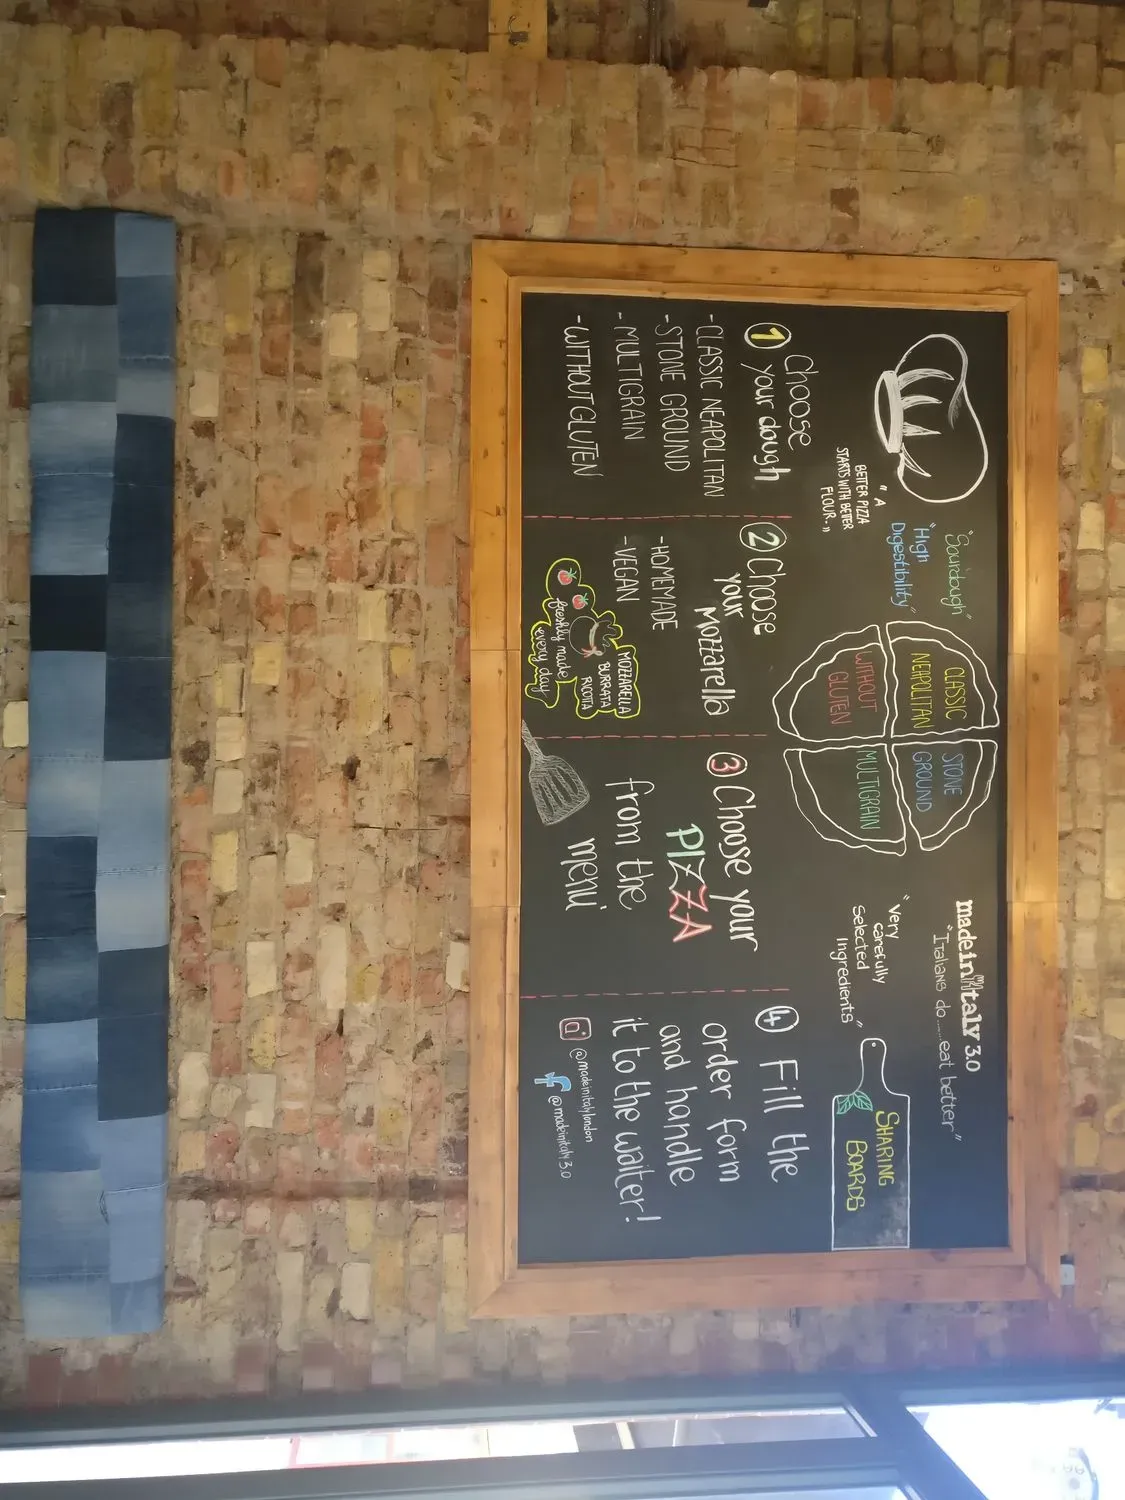 "A
BETTER PIZZA
STARTS WITH BETTER
FLOUR."
"Sourdough"
"High
Digestibility"
CLASSIC
NEAPOLITAN
STONE
GROUND
WITHOUT
GLUTEN
MULTIGRAIN
madeinItaly 3.0
"Italians do.....eat better"
"Very
carefully
Selected
Ingredients"
SHARING
BOARDS
1 Choose
your dough
-CLASSIC NEAPOLITAN
-STONE GROUND
-MULTIGRAIN
-WITHOUT GLUTEN
2 Choose
your
Mozzarella
-HOMEMADE
-VEGAN
MOZZARELLA
BURRATA
RICOTTA
freshly made
every day
3 Choose your
PIZZA
from the
menu
4 Fill the
order form
and handle
it to the waiter!
@madeinitalylondon
f @madeinitaly3.0